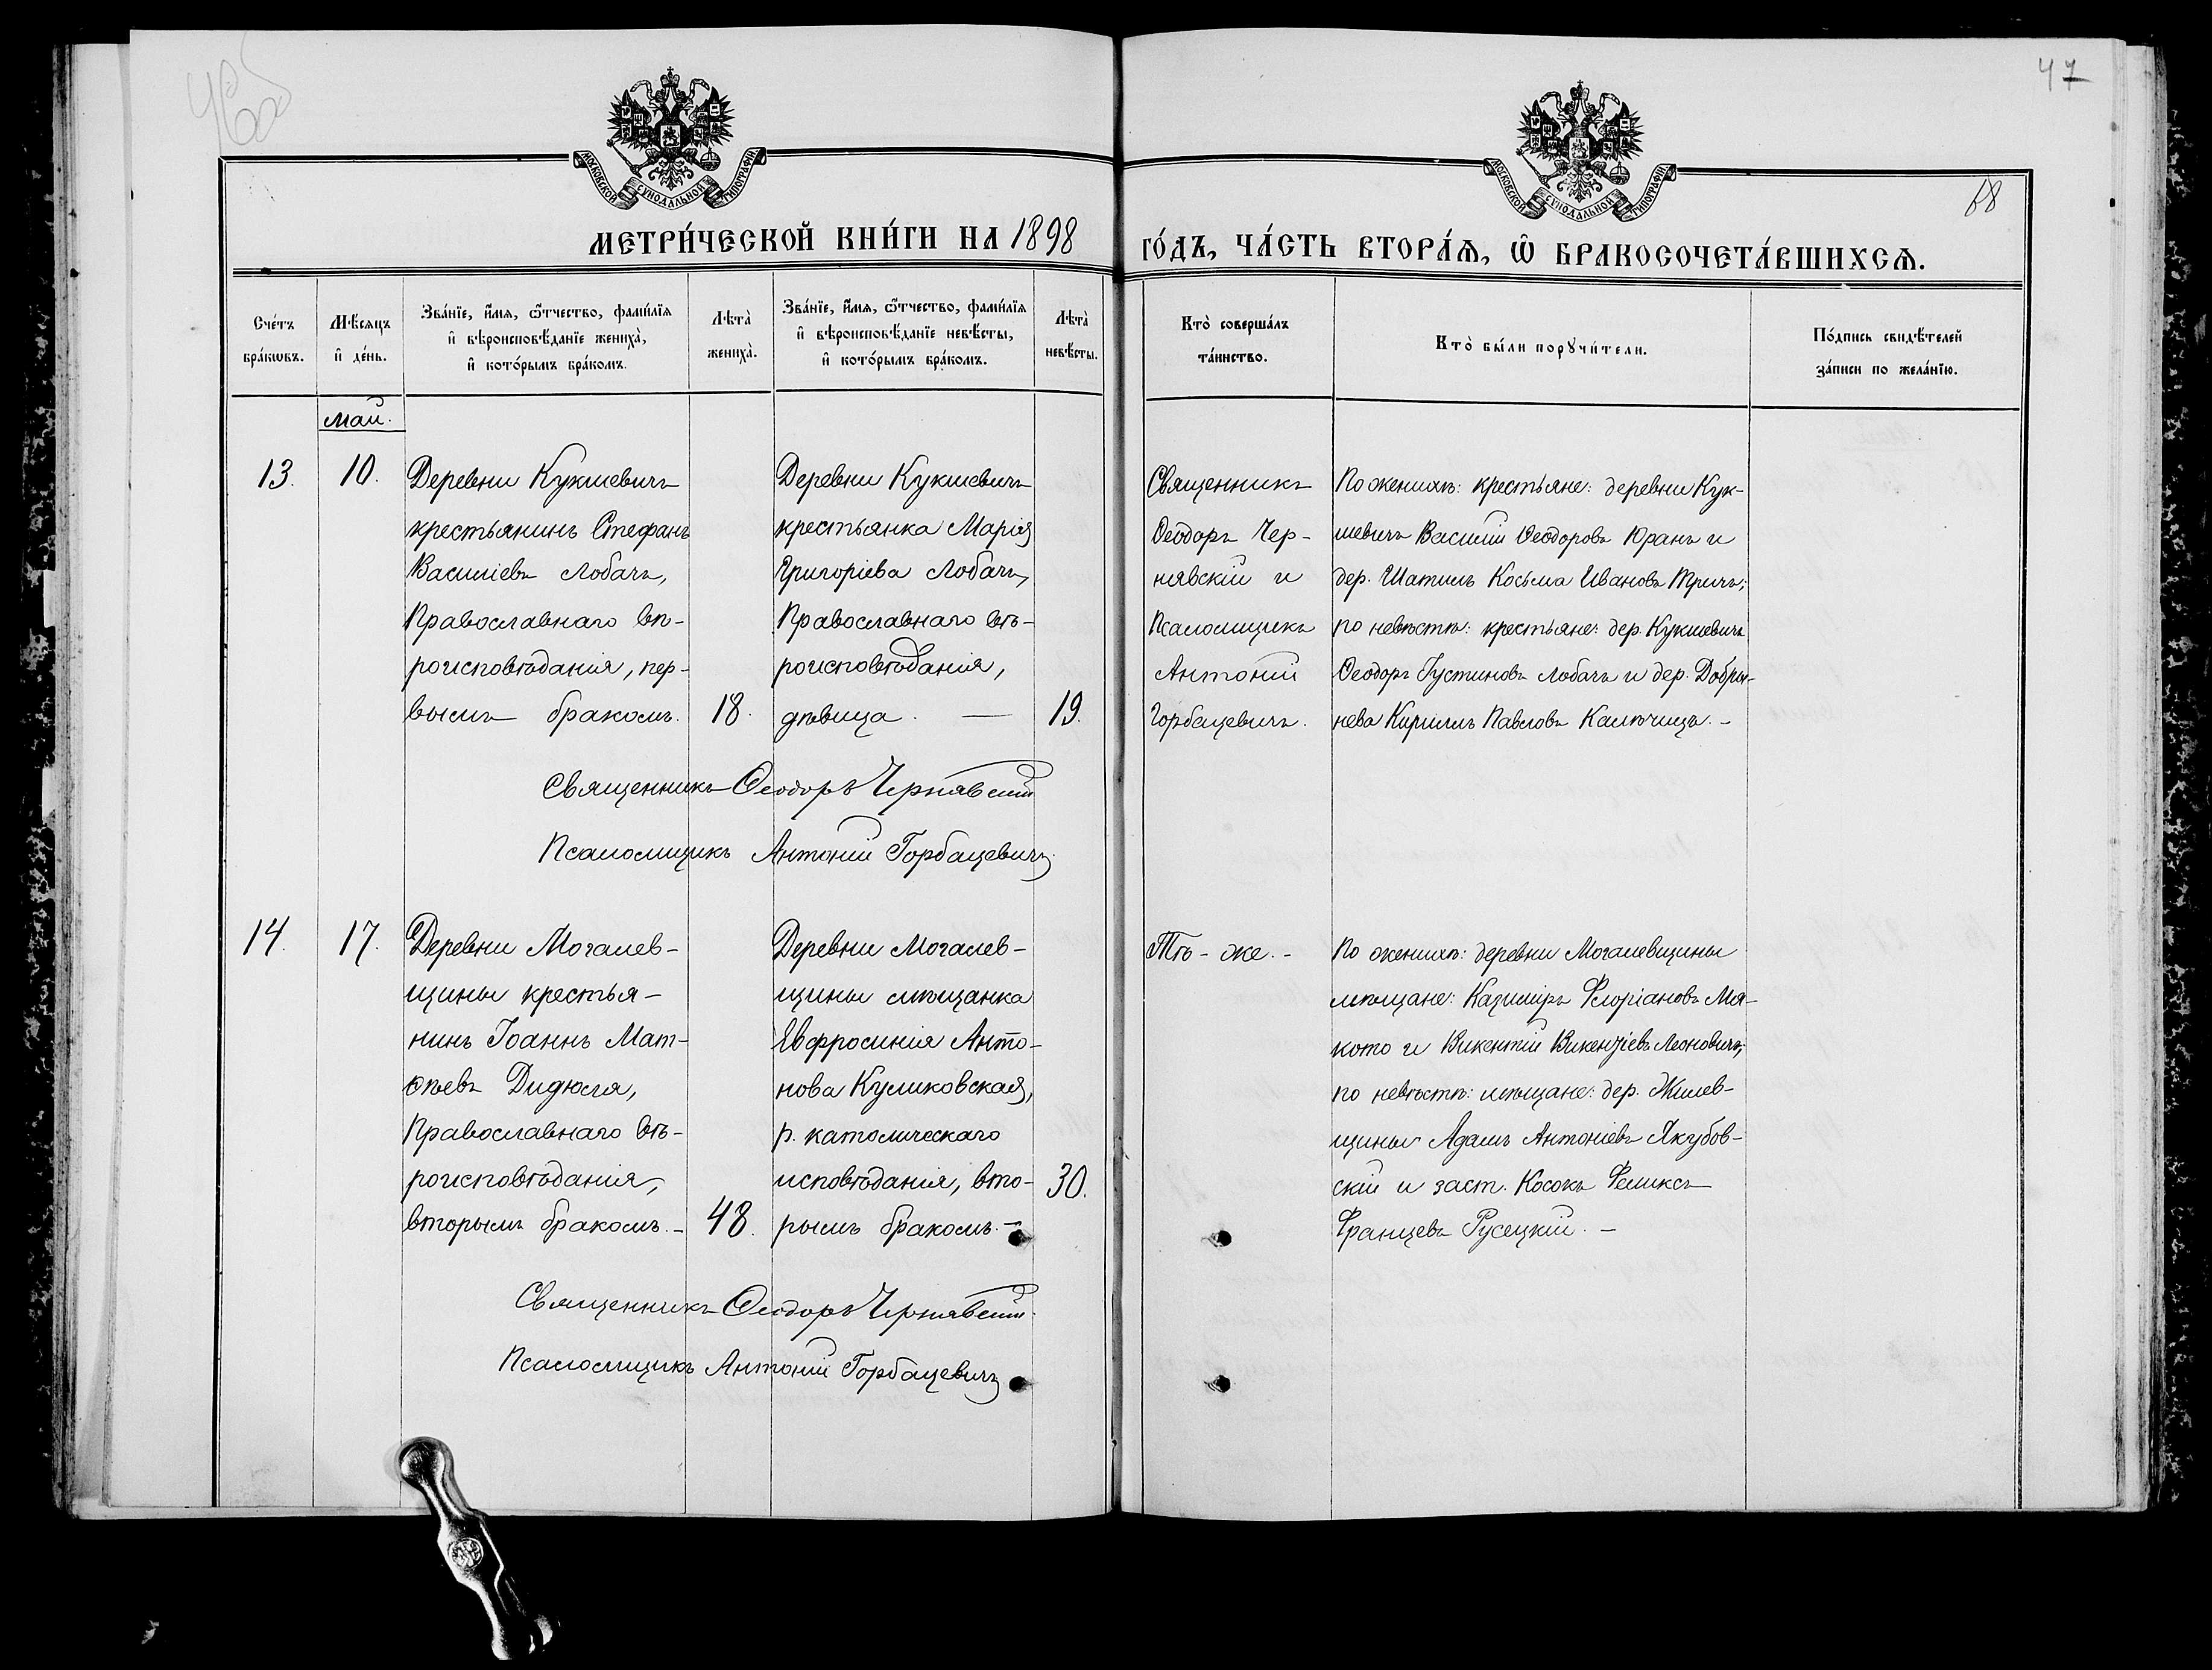 47
МОСКОВСКОЙ СУНОДАЛЬНОЙ ТИПОГРАФІИ
МОСКОВСКОЙ СУНОДАЛЬНОЙ ТИПОГРАФІИ
МЕТРИ́ЧЕСКОЙ КНИ́ГИ НА 1898 ГО́ДЪ, ЧА́СТЬ ВТОРА́Ѧ, Ѽ БРАКОСОЧЕТА́ВШИХСѦ.
Сче́тъ
бра́кѡвъ.
Мѣ́сяцъ
и҆ де́нь.
Зва́нїе, и҆́мѧ, ѻ҆́тчество, фами́лїѧ
и҆ вѣроисповѣ́данїе жениха̀,
и҆ кото́рымъ бра́комъ.
Лѣта̀
жениха̀.
Зва́нїе, и҆́мѧ, ѻ҆́тчество, фами́лїѧ
и҆ вѣроисповѣ́данїе невѣ́сты,
и҆ кото́рымъ бра́комъ.
Лѣта̀
невѣ́сты.
Кто̀ соверша́лъ
та́инство.
Кто̀ бы́ли порꙋчи́тели.
По́дпись свидѣ́телей
за́писи по жела́нїю.
Май.
13.
10.
Деревни Кукшевичъ
крестьянинъ Стефанъ
Василіевъ Лобачъ,
Православнаго вѣ-
роисповѣданія, пер-
вымъ бракомъ.
18.
Деревни Кукшевичъ
крестьянка Марія
Григоріева Лобачъ,
Православнаго вѣ-
роисповѣданія,
дѣвица. —
19.
Священникъ
Ѳеодоръ Чер-
нявскій и
Псаломщикъ
Антоній
Горбацевичъ.
По женихѣ: крестьяне: деревни Кук-
шевичъ Василій Ѳеодоровъ Юранъ и
дер. Шатилъ Косьма Ивановъ Тричъ;
по невѣстѣ: крестьяне: дер. Кукшевичъ
Ѳеодоръ Іустиновъ Лобачъ и дер. Добры-
нева Кириллъ Павловъ Калѣчицъ. -
Священникъ Ѳеодоръ Чернявскій
Псаломщикъ Антоній Горбацевичъ.
14.
17.
Деревни Могалев-
щины крестья-
нинъ Іоаннъ Мат-
ѳѣевъ Дидюля,
Православнаго вѣ-
роисповѣданія,
вторымъ бракомъ. -
48.
Деревни Могалев-
щины мѣщанка
Евфросинія Анто-
нова Куликовская,
р. католическаго
исповѣданія, вто-
рымъ бракомъ. -
30.
Тѣ - же. -
По женихѣ: деревни Могалевщины
мѣщане: Казиміръ Флоріановъ Мя-
кото и Викентій Викентіевъ Леоновичъ;
по невѣстѣ: мѣщане: дер. Жилев-
щины Адамъ Антоніевъ Якубов-
скій и заст. Косокъ Феликсъ
Францевъ Русецкій. -
Священникъ Ѳеодоръ Чернявскій.
Псаломщикъ Антоній Горбацевичъ